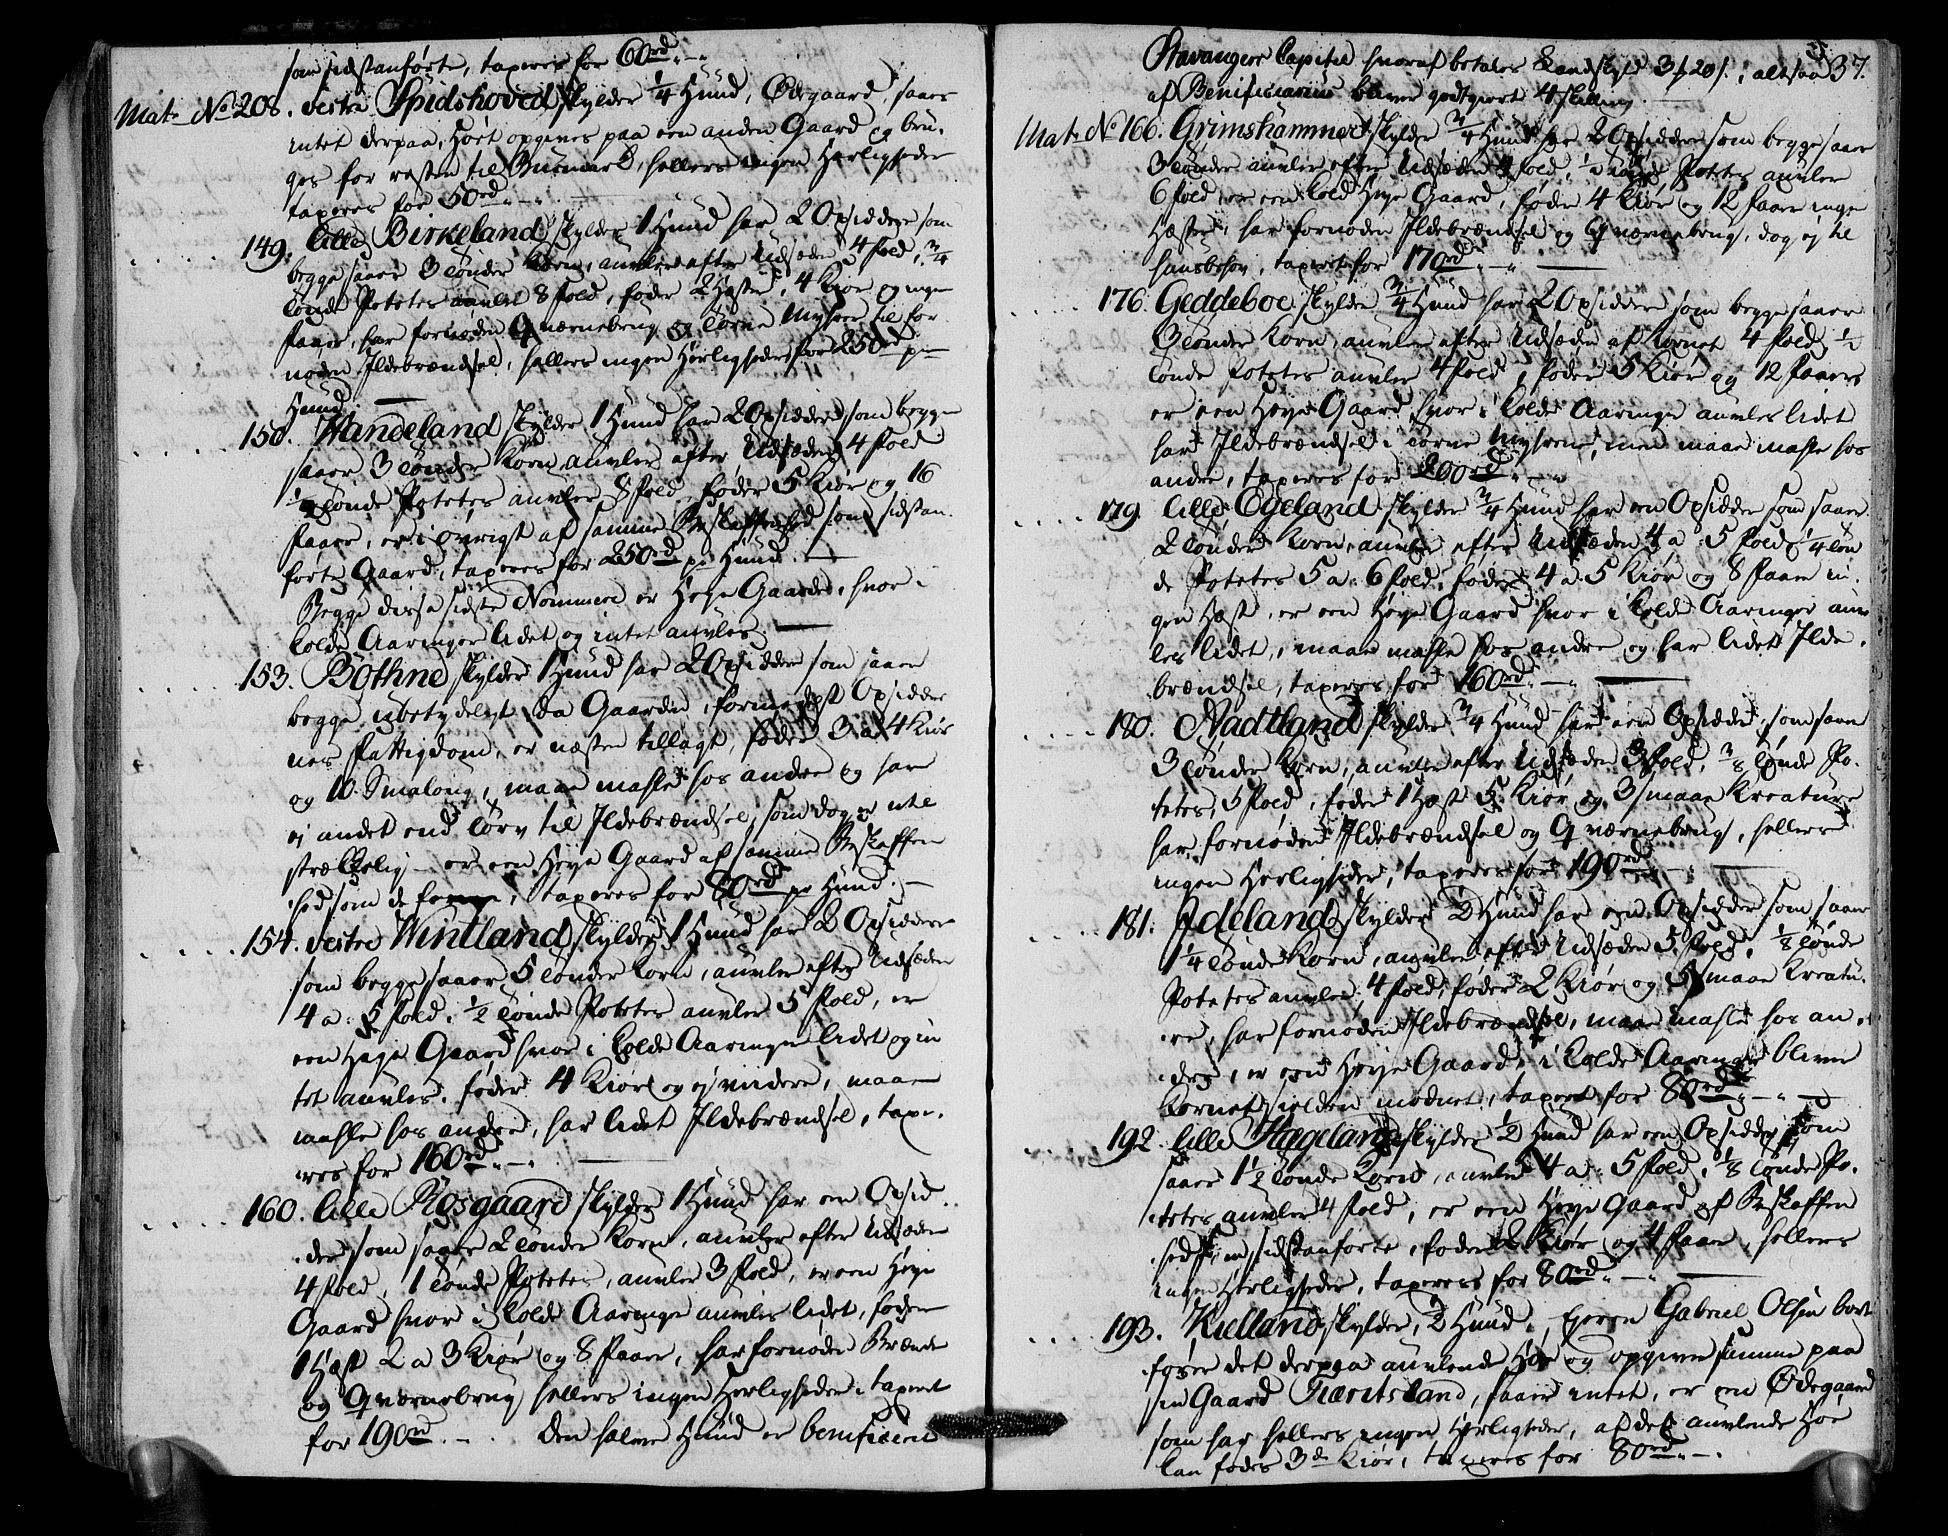 som sidstanførte, taxeres for 60rd „ - „
Mat. No. 208. vestre Spidshoved skylder 1/4 Huud, Ødegaard, saaes
intet derpaa, Høet opgives paa een anden Gaard og bru-
ges for resten til Busmark, hellers ingen Herligheder
taxeres for 50rd „ - „
149. lille Birkeland skylder 1 Huud har 2 Opsiddere som
begge saaer 3 tønder Korn, auvler efter Udsæden 4 fold, 3/4
tønde Potetes auvler 8 fold, føder 2 Heste, 4 Kiør og ingen
Faar, har fornøden Qværnebrug og Torve Myhrer til for-
nøden Ildebrændsel, hellers ingen Herligheder for 250rd pr
Huud —
150. Wandeland skylder 1 Huud har 2 Opsiddere som begge
saaer 3 tønder Korn auvler efter Udsæden 4 fold
1/2 tønde Potetes auvler 8 fold, føder 5 Kiør og 16
Faar, er i øvrigt af samme Beskaffenhed som sidstan-
førte Gaard, taxeres for 250rd pr Huud. —
Begge disse sidste Nommere er Heye Gaarde, hvor i
kolde Aaringer lidet og intet auvles —
153. Bothne skylder 1 Huud har 2 Opsiddere som saaer
begge ubetydeligt da Gaarden, formedelst Opsidder
nes Fattigdom, er næsten tillagt, føder 3 a 4 Kiør
og 10 Smalong, maae mahle hos andre og har
ej andet end Torv til Ildebrændsel, som dog er util
strækkelig — er een Heye Gaard af samme Beskaffen
hed som de forrige, taxeres for 80rd pr Huud. —
154. vestre Wintland skylder 1 Huud har 2 Opsiddere
som begge saaer 5 tønder Korn, auvler efter Udsæden
4 a 5 fold. 1/2 tønde Potetes auvler 5 fold, er
een Heye Gaard hvor i kolde Aaringer lidet og in
tet auvles. føder 4 Kiør og ej videre, maae
mahle hos andre, har lidet Ildebrændsel, taxe-
res for 160rd „ - „ —
160. lille Røsgaard skylder 1 Huud har een Opsid-
der som saaer 2 tønder Korn, auvler efter Udsæden
4 fold, 1 tønde Potetes, auvler 3 fold, er een Heye
Gaard hvor i kolde Aaringer auvles lidet, føder
1 Hest 2 a 3 Kiør og 8 Faar, har fornøden Brænde
og Qværnebrug hellers ingen Herligheder, taxeret
for 190rd. - . Den halve Huud er beneficeret
37.
Stavanger Capitel hvoraf betales Landskyld 3 20 s., altsaa
af Beneficiarius bliver godtgiort 4 skilling. —
Mat. No. 166. Grimshammer skylder 3/4 Huud har 2 Opsiddere som begge saaer
3 tønder auvler efter Udsæden fold, tønde Potetes auvler
6 fold, er een kold Heye Gaard, føder 4 Kiør og 12 Faar ingen
Heste, har fornøden Ildebrændsel og Qværnebrug, dog ej til
huusbehov, taxeret for 170rd „ - „ —
176. Geddeboe skylder 3/4 Huud har 2 Opsiddere som begge saaer
3 tønder Korn, auvler efter Udsæden af Kornet 4 fold, 1/2
tønde Potetes auvler 4 fold, føder 5 Kiør og 12 Faar
er een Heye Gaard hvor i kolde Aaringer auvles lidet
har Ildebrændsel i Torve Myhrene, men maae mahle hos
andre, taxeres for 200rd „ - „
179. lille Egeland skylder 3/4 Huud har een Opsidder som saaer
2 tønder Korn, auvler efter Udsæden 4 a 5 fold, 1/4 tøn
de Potetes 5 a 6 fold, føder 4 a 5 Kiør og 8 Faar in-
gen Hest, er een Heye Gaard hvor i kolde Aaringer auv
les lidet, maae mahle hos andre og har lidet Ilde-
brændsel, taxeres for 160rd. - „ —
180. Nadtland skylder 3/4 Huud har een Opsidder som saaer
3 tønder Korn, auvler efter Udsæden 3 fold, 3/8 tønde Po-
tetes, 5 fold, føder 1 Hest 5 Kiør og 3 smaae Kreature
har fornøden Ildebrændsel og Qværnebrug, hellers
ingen Herligheder, taxeres for 190rd „ - „ —
181. Adeland skylder 1/2 Huud har een Opsidder som saaer
1 1/4 tønde Korn, auvler efter Udsæden 5 fold. 1/8 tønde
Potetes auvler 4 fold, føder 2 Kiør og 5 smaae Kreatu-
re, har fornøden Ildebrændsel, maae mahle hos an-
dre, er een Heye Gaard, i kolde Aaringer bliver
Kornet sielden modnet, taxeret for 80rd „ - „ —
192. lille Hægeland skylder 1/2 Huud har een Opsidder som
saaer 1 1/2 tønde Korn, auvler 4 a 5 fold, 1/8 tønde Po-
tetes auvler 4 fold, er een Heye Gaard af Beskaffen
hed som sidstanførte, føder 2 Kiør og 4 Faar, hellers
ingen Herligheder, taxeres for 80rd „ - „ —
193. Kielland skylder 1/2 Huud, Eyeren Gabriel Olsen bort
fører det derpaa auvlende Høe og opgiver samme paa
sin Gaard Tiæreitsland, saaer intet, er een Ødegaard
som har hellers ingen Herligheder, af det auvlende Høe
kan fødes 3de Kiør, taxeres for 80rd „ - .